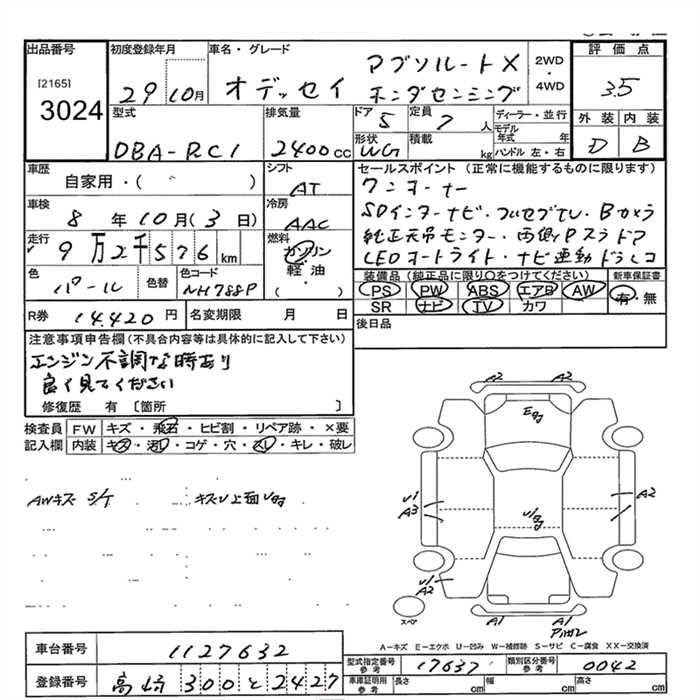 出品番号
[2165]
3024
初度登録年月
29 10月
車名・グレード
オデッセイ
アブソルートX
ホンダセンシング
2WD
・
4WD
評価点
3.5
外装 内装
D B
型式
DBA-RC1
排気量
2400cc
ドア
5
定員
7人
形状
WG
積載
kg
ディーラー・並行
モデル年式 年
ハンドル 左・右
車歴
自家用・( )
シフト
AT
車検
8年10月(3日)
冷房
AAC
走行
9万2千576km
燃料
ガソリン
軽油
( )
色
パール
色替
色コード
NH788P
セールスポイント (正常に機能するものに限ります)
ワンオーナー
SDインターナビ・フルセグTV・Bカメラ
純正天吊モニター・両側Pスラドア
LEDオートライト・ナビ連動ドラレコ
装備品(純正品に限り○をつけてください)
PS PW ABS エアB AW
SR ナビ TV カワ
新車保証書
有・無
R券 14.420円
名変期限 月 日
後日品
注意事項申告欄(不具合内容等は具体的に記入して下さい)
エンジン不調な時あり
良く見てください
修復歴 有 〔箇所 〕
検査員 FW キズ・飛石・ヒビ割・リペア跡・×要
記入欄 内装 キズ・汚れ・コゲ・穴・スレ・キレ・破レ
AWキズ S/T
キズU上面
A2 A2
U1
A3
A2
U1
A2
A1 A1
スペア
A−キズ E−エクボ U−凹み W−補修跡 S−サビ C−腐食 XX−交換済
車台番号
1127632
登録番号
高崎 300 と 2427
型式指定番号
参考
17637
類別区分番号
参考
0042
車庫証明用
参考
長さ cm 幅 cm 高さ cm